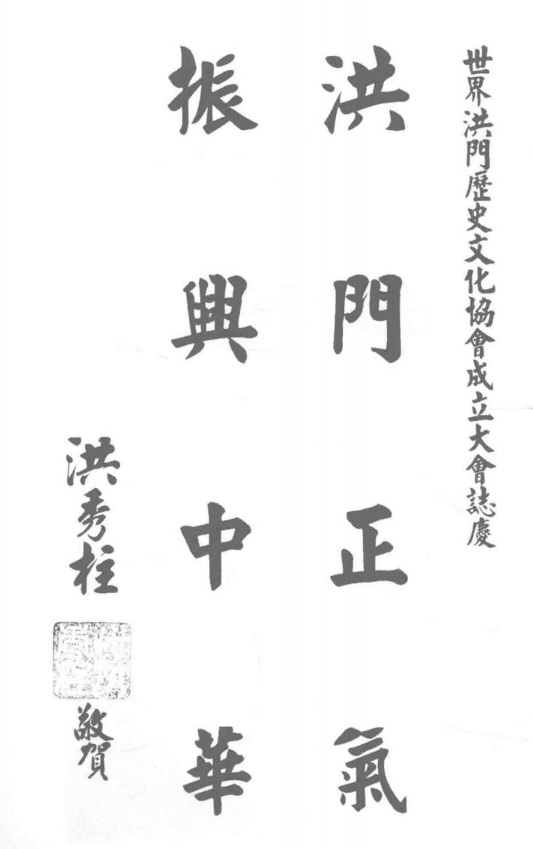 世界洪門歷史文化協會成立大會誌慶
洪門正氣
振興中華
洪秀柱
敬賀